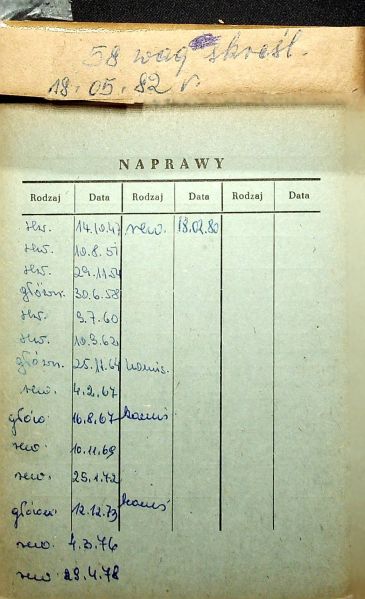 58 wag skreśl.
18.05.82 r.
NAPRAWY
Rodzaj Data Rodzaj Data Rodzaj Data
rew. 14.10.47 rew. 18.02.80
rew. 10.8.51
rew. 29.11.54
główn. 30.6.58
rew. 9.7.60
rew. 10.3.62
główn. 25.11.64 komis.
rew. 4.2.67
główn. 16.8.67 komis
rew. 10.11.69
rew. 25.1.72
główn. 12.12.73 komis
rew. 4.3.76
rew. 29.4.78